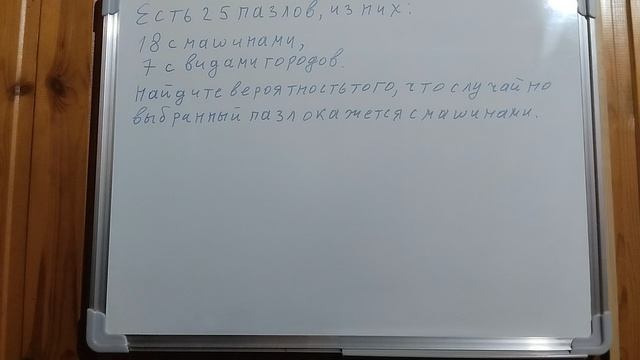 Есть 25 пазлов, из них:
18 с машинами,
7 с видами городов.
Найдите вероятность того, что случайно
выбранный пазл окажется с машинами.